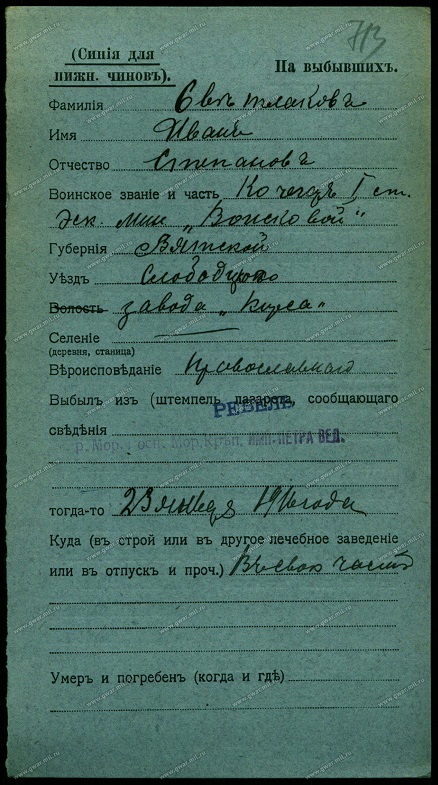 713
(Синія для
нижн. чиновъ).
На выбывшихъ.
Фамилія Светлаковъ
Имя Иванъ
Отчество Степановъ
Воинское званіе и часть Кочегаръ I ст.
Эск. мин. „Войсковой"
Губернія Вятской
Уѣздъ Слободского
Волость завода „Кирса"
Селеніе
(деревня, станица)
Вѣроисповѣданіе Православнаго
Выбылъ изъ (штемпель лазарета, сообщающаго
РЕВЕЛЬ
свѣдѣнія
Мор. Крѣп. ИМП. ПЕТРА ВЕЛ.
тогда-то 23 января 1916 года
Куда (въ строй или въ другое лечебное заведеніе
или въ отпускъ и проч.) Въ свою часть
Умеръ и погребенъ (когда и гдѣ)
www.gwar.mil.ru